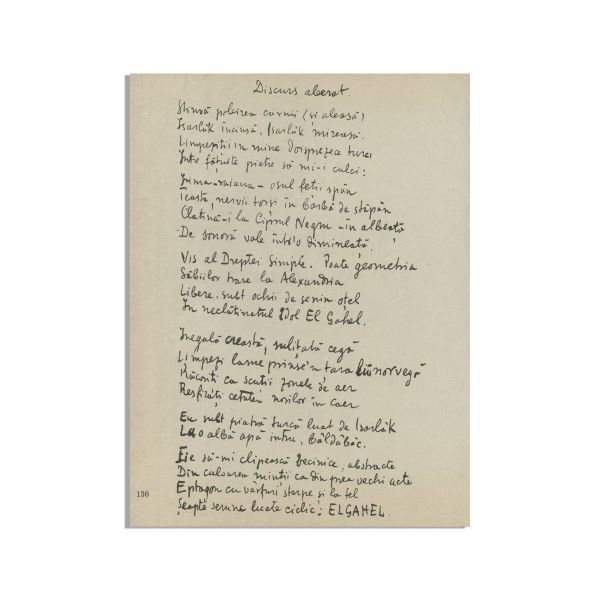 Discurs aberat.
Stinsă polcirea cărnii (și aleasă)
Isarlâk încinsă, Isarlâk mireasă.
Limpeziți în mine doisprezea turci
Între fățuite pietre să mi-i culci:
Inima-raiaua - osul feții spân
Țeastă, nervii torși în barbă de stăpân
Clatină-i la Ciprul Negru - în albeață
De sonoră vale într'o dimineață.
Vis al Dreptei Simple. Poate geometria
Săbiilor trase la Alexandria
Libere, subt ochii de senin oțel
În neclătinatul Idol El Gahel.
Inegală creastă, sulițată cegă
Limpezi lame prinse'n țara norvegă
Răcoriți ca scutii zonele de aer
Resfirați cetatea norilor în caer
Eu subt piatră turcă luat de Isarlâk
La o albă apă intru. Bâldâbâc.
Fie să-mi clipească vecinice, abstracte
Din culoarea minții ca din prea vechi acte
Eptagon cu vârfuri sterpe și la fel
Șeapte semne lucate ciclic: EL GAHEL.
130